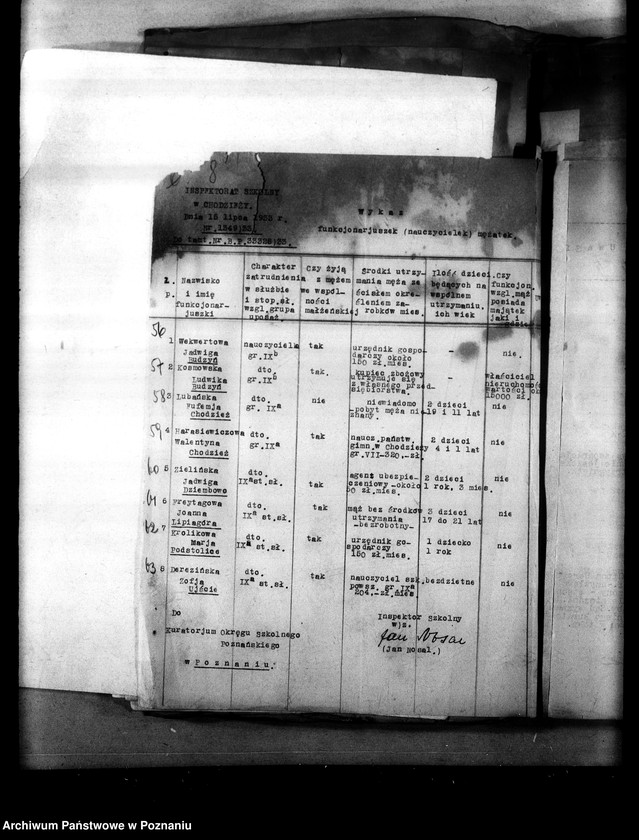 8
INSPEKTORAT SZKOLNY
w CHODZIEŻY.
Dnia 15 lipca 1933 r.
Nr.1349/33.
Do tamt.Nr.B.P.33328/33.
Wykaz
funkcjonarjuszek (nauczycielek) mężatek.
l. p.
Nazwisko i imię funkcjonar-juszki
Charakter zatrudnienia w służbie i stop.sł. wzgl.grupa uposaż.
Czy żyją z mężem we wspól-ności małżeńskiej
Środki utrzy-mania męża ze ścisłem okre-śleniem za-robków mies.
Ilość dzieci będących na wspólnem utrzymaniu. ich wiek
Czy funkcjon. wzgl.mąż posiada majątek jaki i gdzie
56
1 Wekwertowa Jadwiga Budzyń
nauczycielka gr.IXb
tak
urzędnik gospo-darczy około 150 zł.mies.
-
nie.
57
2 Kosmowska Ludwika Budzyń
dto. gr.IXb
tak.
kupiec zbożowy utrzymuje się z własnego przed-siębiorstwa.
-
właściciel nieruchomości wartości ok. 15000 zł.
58
3 Łubańska Eufemja Chodzież
dto. gr. IXa
nie
niewiadomo -pobyt męża nie-znany.
2 dzieci 19 i 11 lat
nie
59
4 Harasiewiczowa Walentyna Chodzież
dto. gr.IXa
tak
naucz.państw. gimn.w Chodzieży gr.VII-320.-zł.
2 dzieci 4 i 1 lat
nie
60
5 Zielińska Jadwiga Dziembowo
dto. IXa st.sł.
tak
agent ubezpie-czeniowy -około 50 zł.mies.
2 dzieci 1 rok, 3 mies.
nie
61
6 Freytagowa Joanna Lipiagóra
dto. IXa st.sł.
tak
mąż bez środków utrzymania -bezrobotny-
3 dzieci 17 do 21 lat
nie
62
7 Królikowa Marja Podstolice
dto. IXa st.sł.
tak
urzędnik go-spodarczy 150 zł.mies.
1 dziecko 1 rok
nie
63
8 Derezińska Zofja Ujście
dto. IXa st.sł.
tak
nauczyciel szk. powsz. gr.IXa 204.-zł.mies.
bezdzietne
nie
Do
Kuratorjum Okręgu Szkolnego
Poznańskiego
w Poznaniu.
Inspektor Szkolny
w/z.
Jan Nosal
(Jan Nosal.)
Archiwum Państwowe w Poznaniu